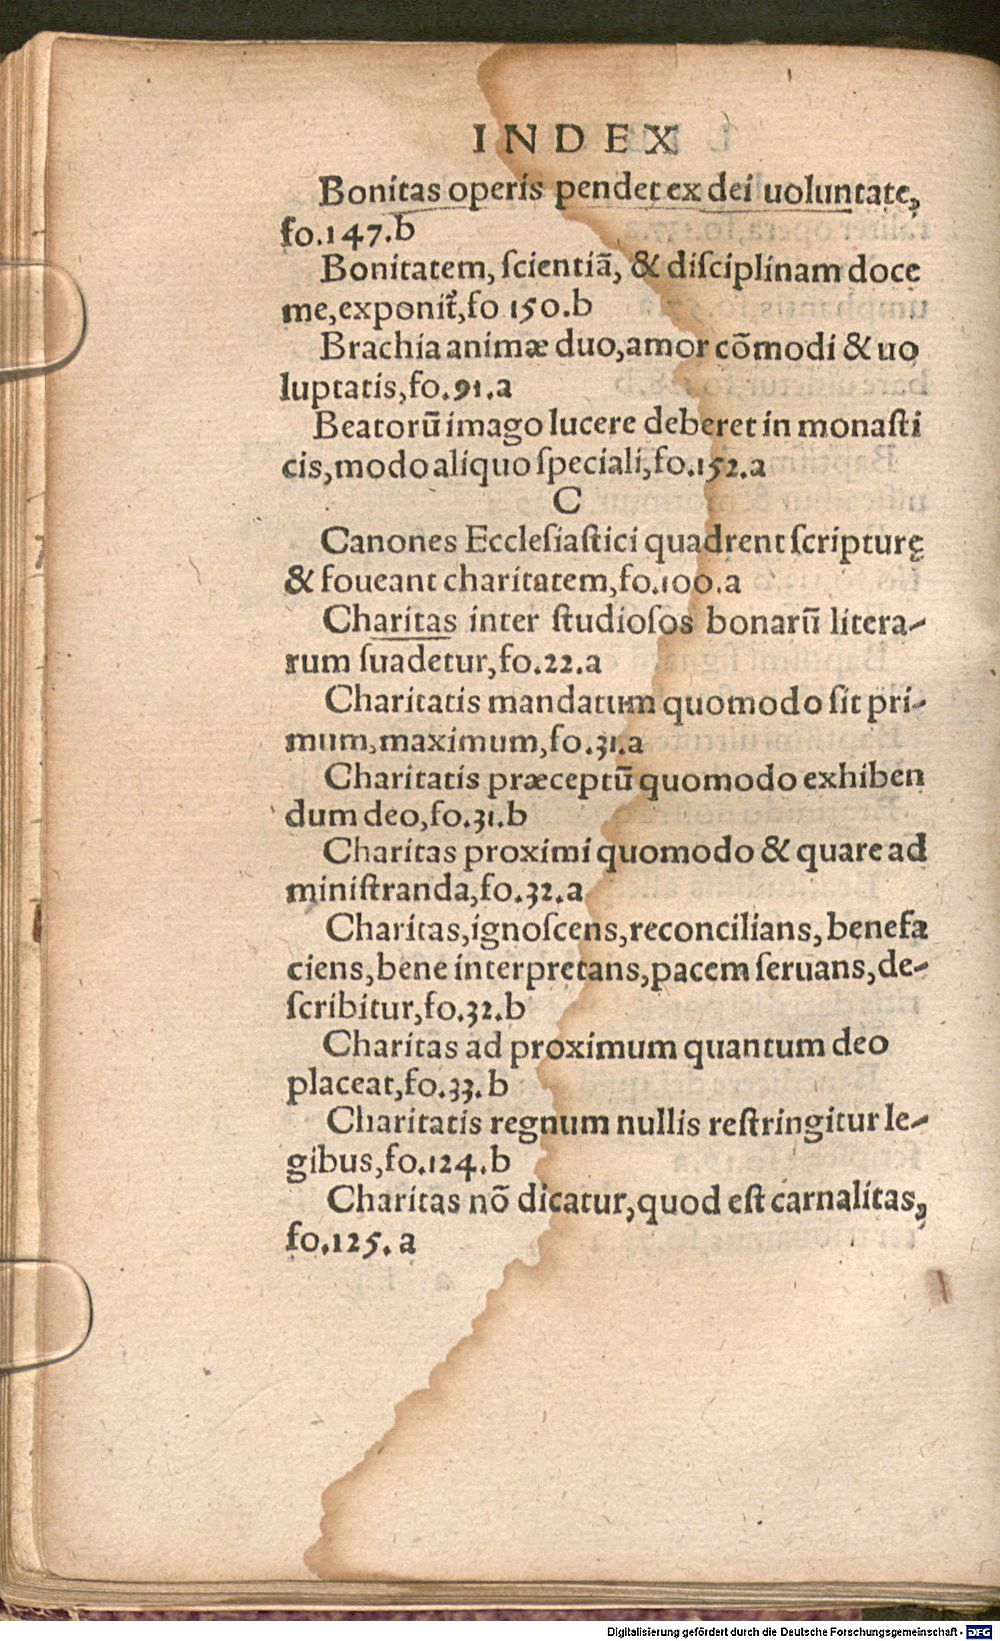 INDEX
Bonitas operis pendet ex dei uoluntate,
fo.147.b
Bonitatem, ſcientiã, & diſciplinam doce
me,exponit᷑,fo 150.b
Brachia animæ duo,amor cõmodi & uo
luptatis,fo.91.a
Beatorũ imago lucere deberet in monaſti
cis,modo aliquo ſpeciali,fo.152.a
C
Canones Eccleſiaſtici quadrent ſcripturę
& foueant charitatem,fo.100.a
Charitas inter ſtudioſos bonarũ litera-
rum ſuadetur,fo.22.a
Charitatis mandatum quomodo ſit pri-
mum,maximum,fo.31.a
Charitatis præceptũ quomodo exhiben
dum deo,fo.31.b
Charitas proximi quomodo & quare ad
miniſtranda,fo.32.a
Charitas,ignoſcens,reconcilians,benefa
ciens,bene interpretans,pacem ſeruans,de-
ſcribitur,fo.32.b
Charitas ad proximum quantum deo
placeat,fo.33.b
Charitatis regnum nullis reſtringitur le-
gibus,fo.124.b
Charitas nõ dicatur,quod eſt carnalitas,
fo.125.a
Digitalisierung gefördert durch die Deutsche Forschungsgemeinschaft - DFG